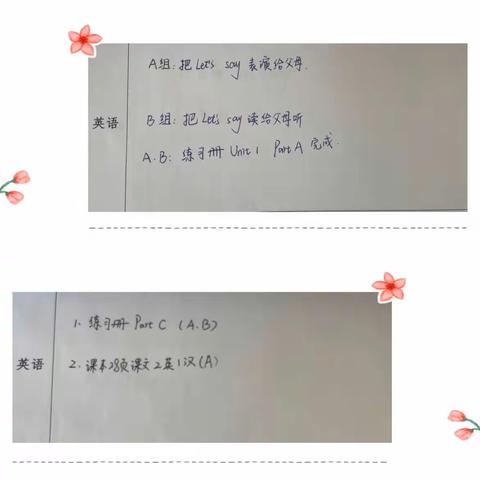 A组：把Let's say 表演给父母.
英语
B组：把Let's say 读给父母听
A.B: 练习册 Unit 1 Part A 完成.
1. 练习册 Part C (A.B)
英语
2. 课本28页课文2英1汉(A)